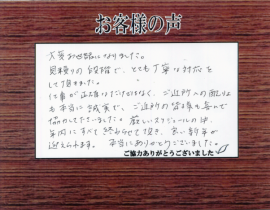 お客様の声
大変お世話になりました。
見積りの段階で、とても丁寧な対応を
して頂きました。
仕事が正確なだけではなく、ご近所への配りょ
も本当に誠実で、ご近所の皆様も喜んで
協力してくださいました。厳しいスケジュールの中、
年内にすべて終わらせて頂き、良い新年が
迎えられます。本当にありがとうございました。
ご協力ありがとうございました